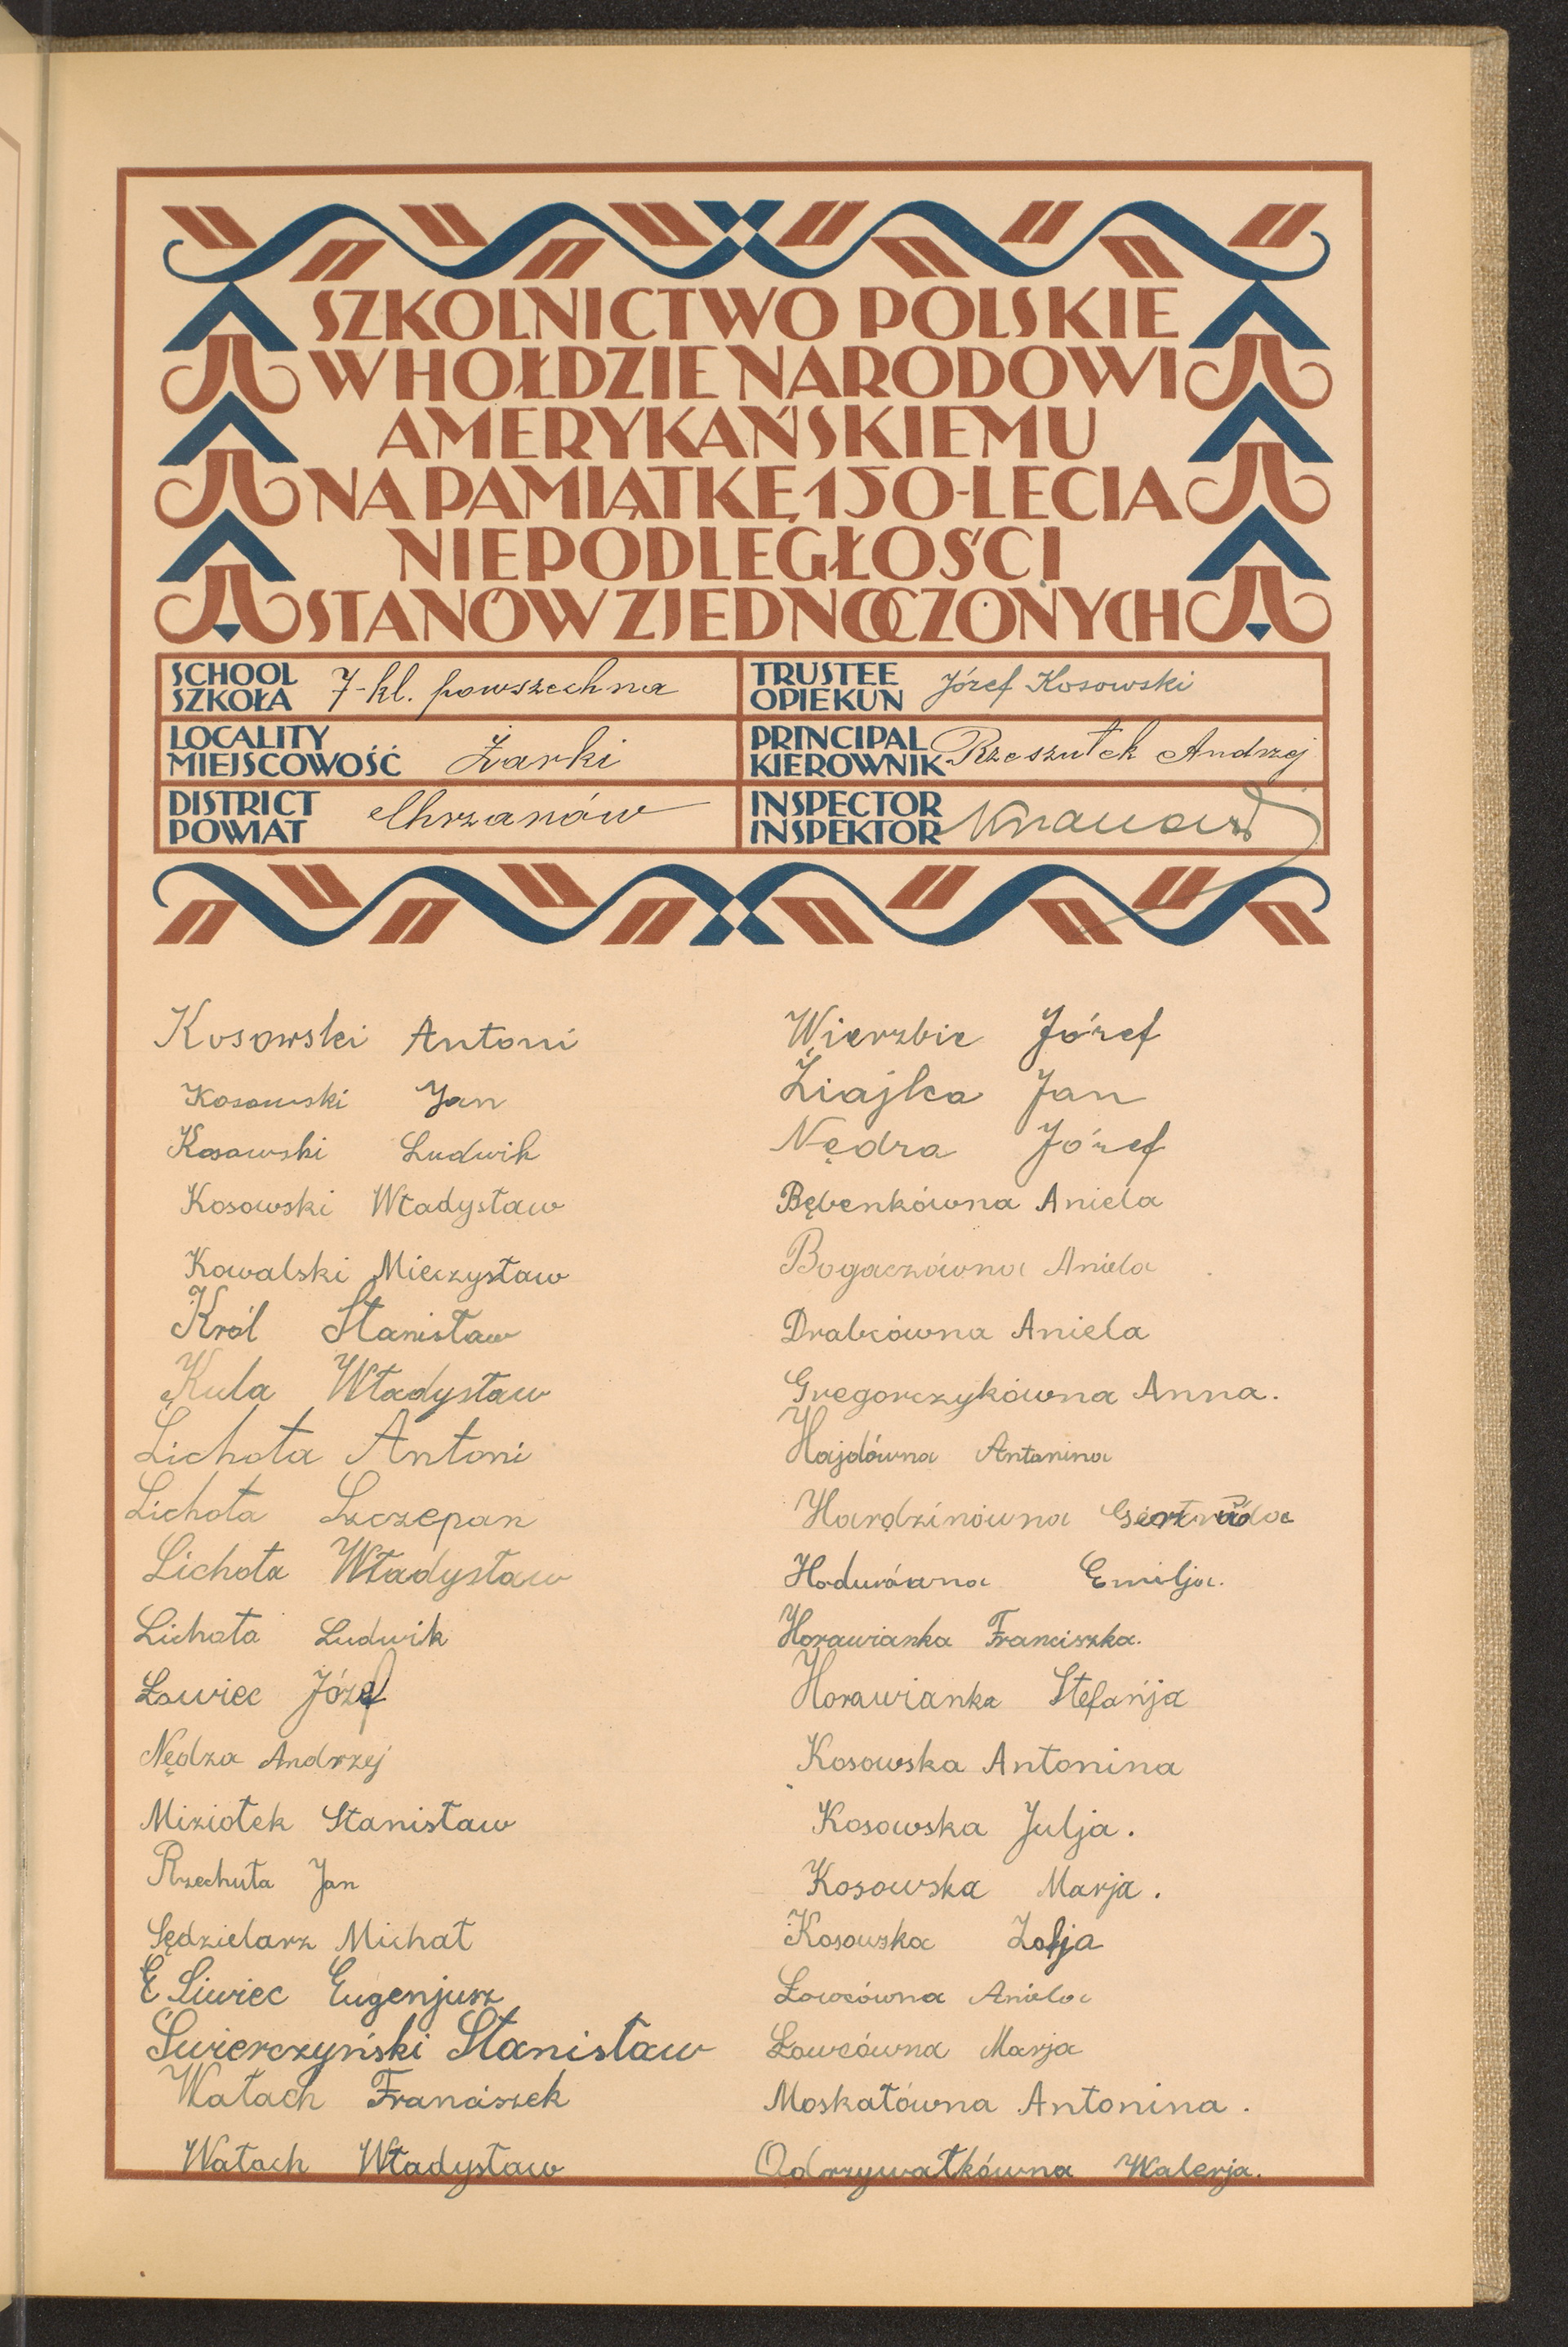 SZKOLNICTWO POLSKIE
W HOŁDZIE NARODOWI
AMERYKAŃSKIEMU
NA PAMIĄTKĘ 150-LECIA
NIEPODLEGŁOŚCI
STANÓW ZJEDNOCZONYCH
SCHOOL
SZKOŁA
7-kl. powszechna
TRUSTEE
OPIEKUN
Józef Kosowski
LOCALITY
MIEJSCOWOŚĆ
Żarki
PRINCIPAL
KIEROWNIK
Rzeszutek Andrzej
DISTRICT
POWIAT
Chrzanów
INSPECTOR
INSPEKTOR
Kosowski Antoni
Kosowski Jan
Kosowski Ludwik
Kosowski Władysław
Kowalski Mieczysław
Król Stanisław
Kula Władysław
Lichota Antoni
Lichota Szczepan
Lichota Władysław
Lichota Ludwik
Łowiec Józef
Nędza Andrzej
Miziołek Stanisław
Rzechuta Jan
Sędzielarz Michał
E Siwiec Eugenjusz
Świerczyński Stanisław
Watach Franciszek
Watach Władysław
Wierzbic Józef
Ziajka Jan
Nędza Józef
Bębenkówna Aniela
Bogaczówna Aniela
Drabcówna Aniela
Gregorczykówna Anna.
Hajdówna Antonina
Hardzinówna Gertruda
Hodurówna Emilja.
Horawianka Franciszka.
Horawianka Stefanja
Kosowska Antonina
Kosowska Julja.
Kosowska Marja.
Kosowska Zofja
Łowcówna Aniela
Łowcówna Marja
Moskałówna Antonina.
Odrzywałkówna Walerja.